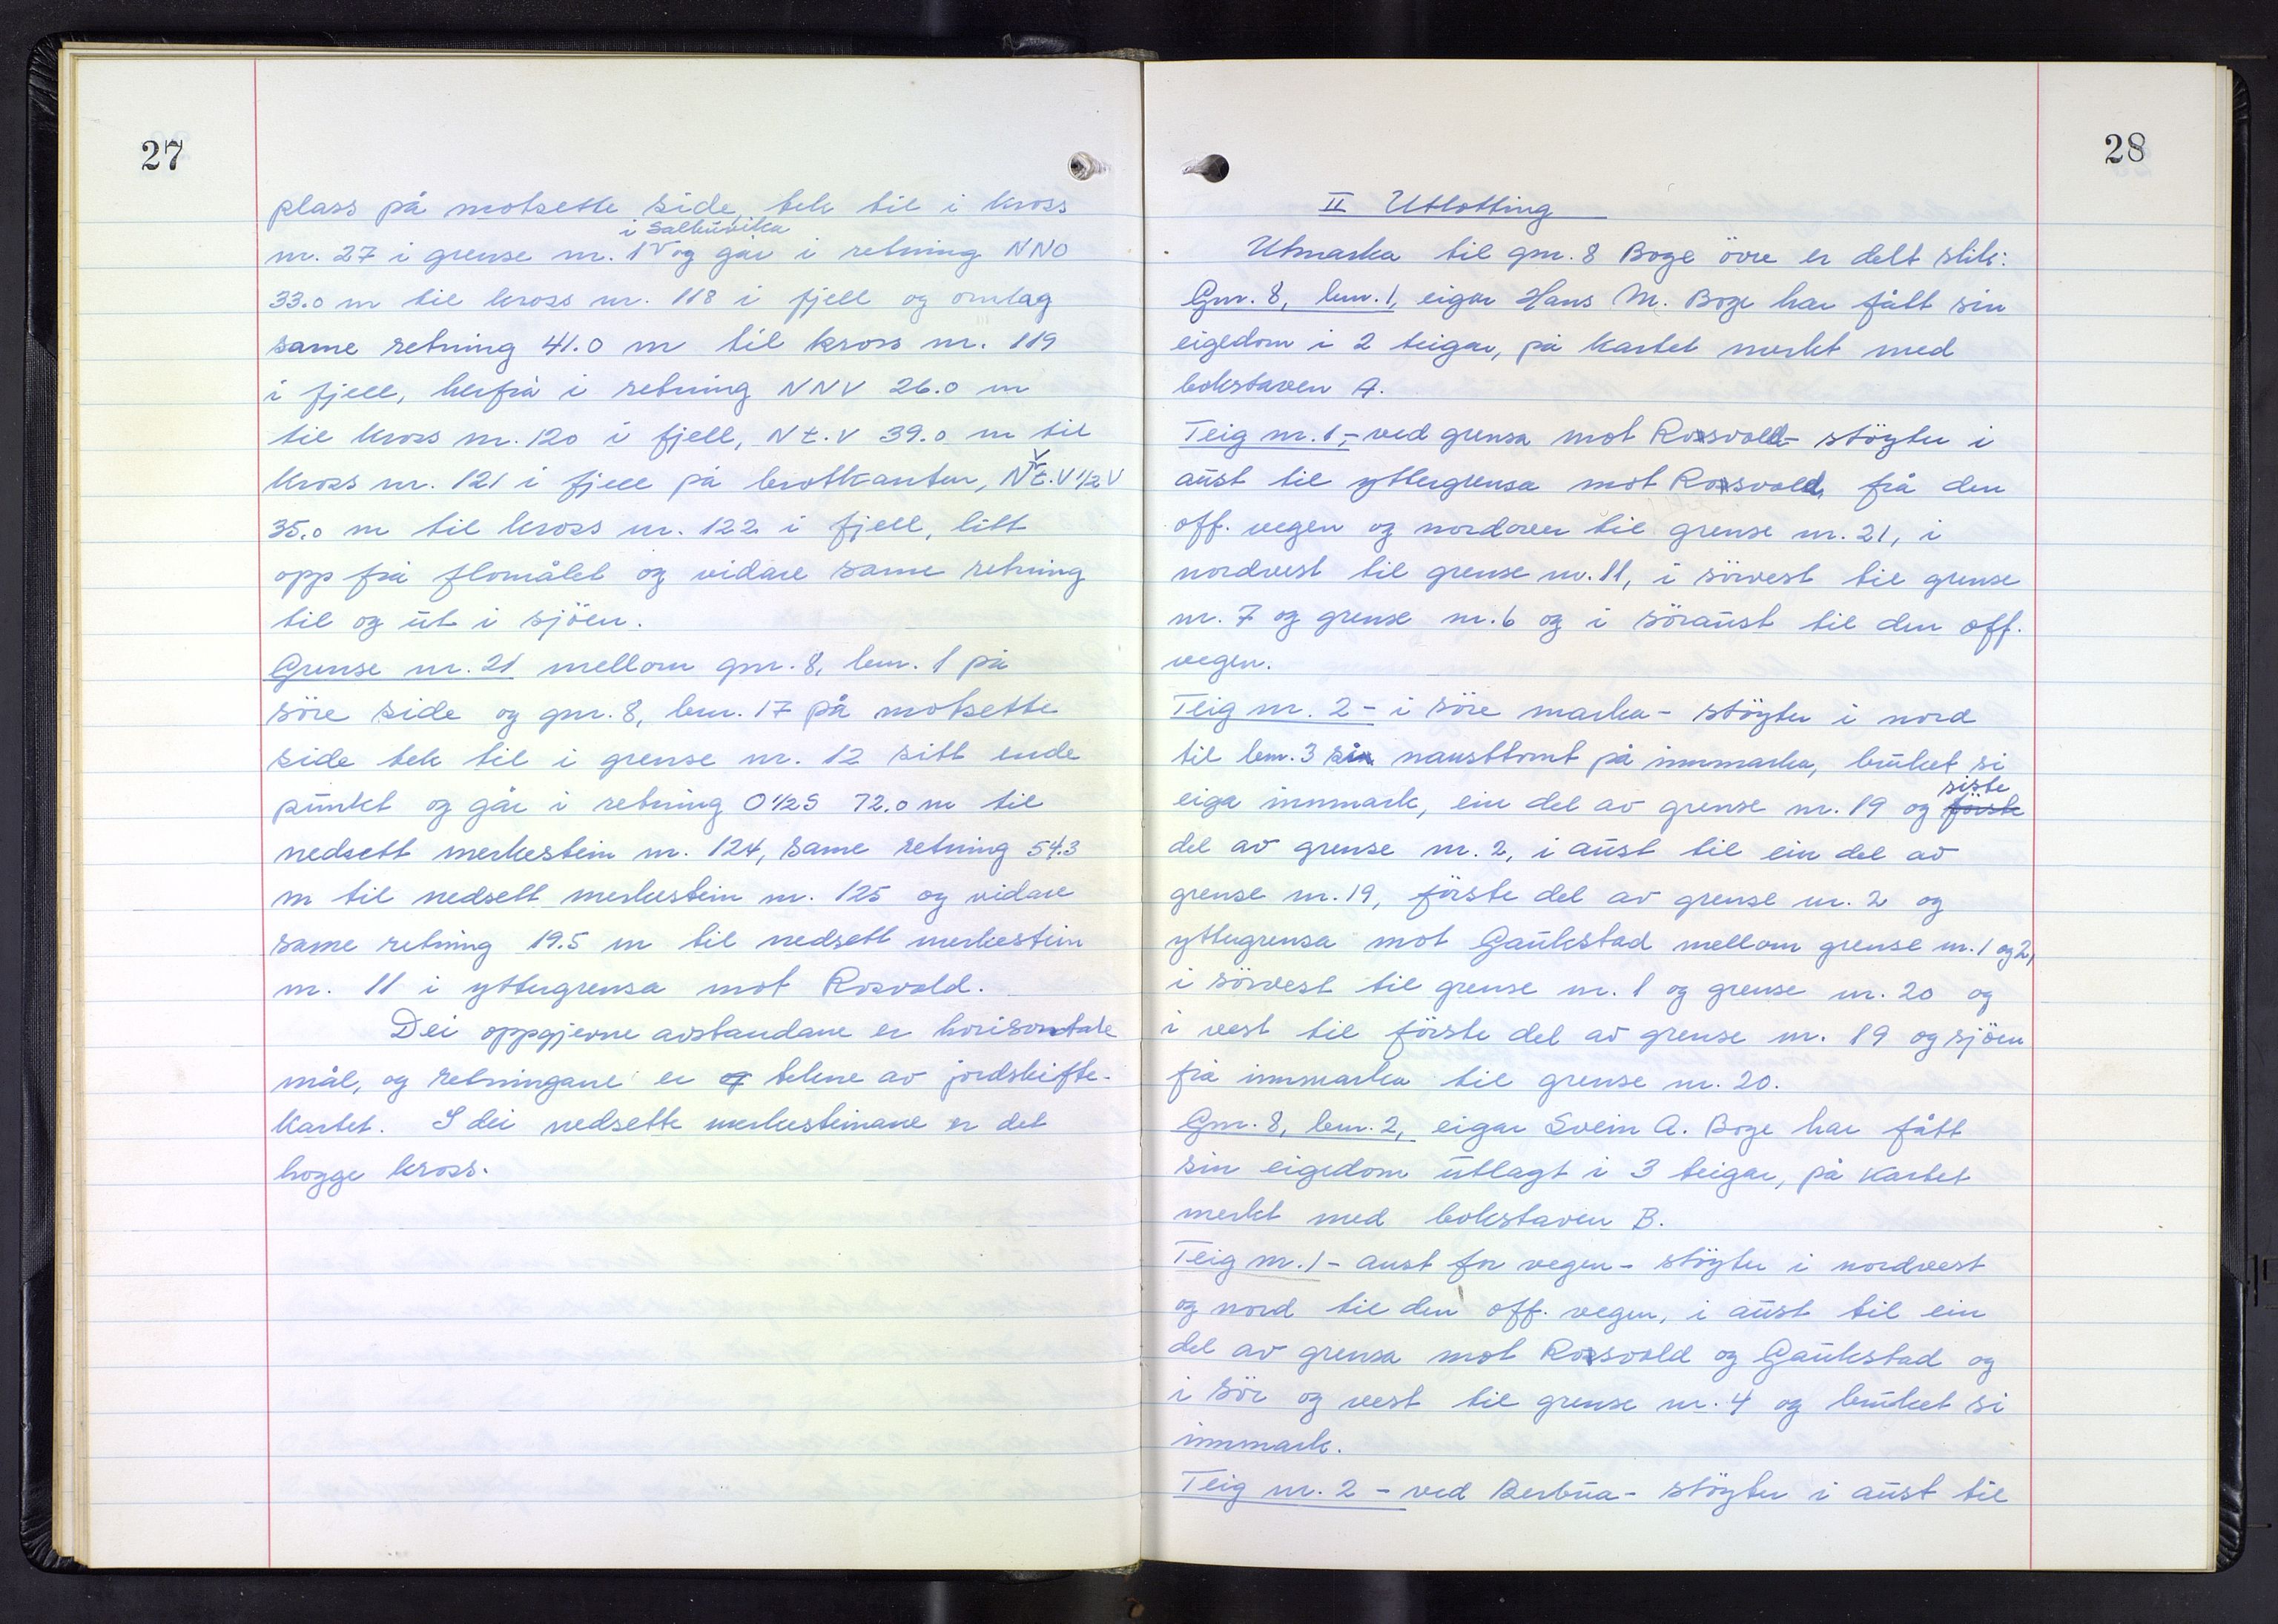 27
plass på motsette side, tek til i kross
nr. 27 i grense nr. 1 i Salbuvika og går i retning NNO
33.0 m til kross nr. 118 i fjell og omlag
same retning 41.0 m til kross nr. 119
i fjell, herfrå i retning NNV 26.0 m
til kross nr. 120 i fjell, N t. V 39.0 m til
kross nr. 121 i fjell på brotkanten, NV t. V 1/2 V
35.0 m til kross nr. 122 i fjell, litt
opp frå flomålet og vidare same retning
til og ut i sjöen.
Grense nr. 21 mellom gnr. 8, bnr. 1 på
söre side og gnr. 8, bnr. 17 på motsette
side tek til i grense nr. 12 sitt ende
punkt og går i retning O 1/2 S 72.0 m til
nedsett merkestein nr. 124, same retning 54.3
m til nedsett merkestein nr. 125 og vidare
same retning 19.5 m til nedsett merkestein
nr. 11 i yttergrensa mot Rosvold.
Dei oppgjevne avstandane er horisontale
mål, og retningane er tekne av jordskifte-
kartet. I dei nedsette merkesteinane er det
hogge kross.
28
II Utlotting
Utmarka til gnr. 8 Boge övre er delt slik:
Gnr. 8, bnr. 1, eigar Hans M. Boge har fått sin
eigedom i 2 teigar, på kartet merkt med
bokstaven A.
Teig nr. 1,- ved grensa mot Rossvold- stöyter i
aust til yttergrensa mot Rossvold, frå den
off. vegen og nordover til grense nr. 21, i
nordvest til grense nr. 11, i sörvest til grense
nr. 7 og grense nr. 6 og i söraust til den off.
vegen.
Teig nr. 2 - i söre marka - stöyter i nord
til bnr. 3 sin nausttomt på innmarka, bruket si
eiga innmark, ein del av grense nr. 19 og förste siste
del av grense nr. 2, i aust til ein del av
grense nr. 19, förste del av grense nr. 2 og
yttergrensa mot Gaukstad mellom grense nr. 1 og 2,
i sörvest til grense nr. 1 og grense nr. 20 og
i vest til förste del av grense nr. 19 og sjöen
frå innmarka til grense nr. 20.
Gnr. 8, bnr. 2, eigar Svein A. Boge har fått
sin eigedom utlagt i 3 teigar, på kartet
merkt med bokstaven B.
Teig nr. 1 - aust for vegen - stöyter i nordvest
og nord til den off. vegen, i aust til ein
del av grensa mot Rossvold og Gaukstad og
i sör og vest til grense nr. 4 og bruket si
innmark.
Teig nr. 2 - ved Berbua - stöyter i aust til